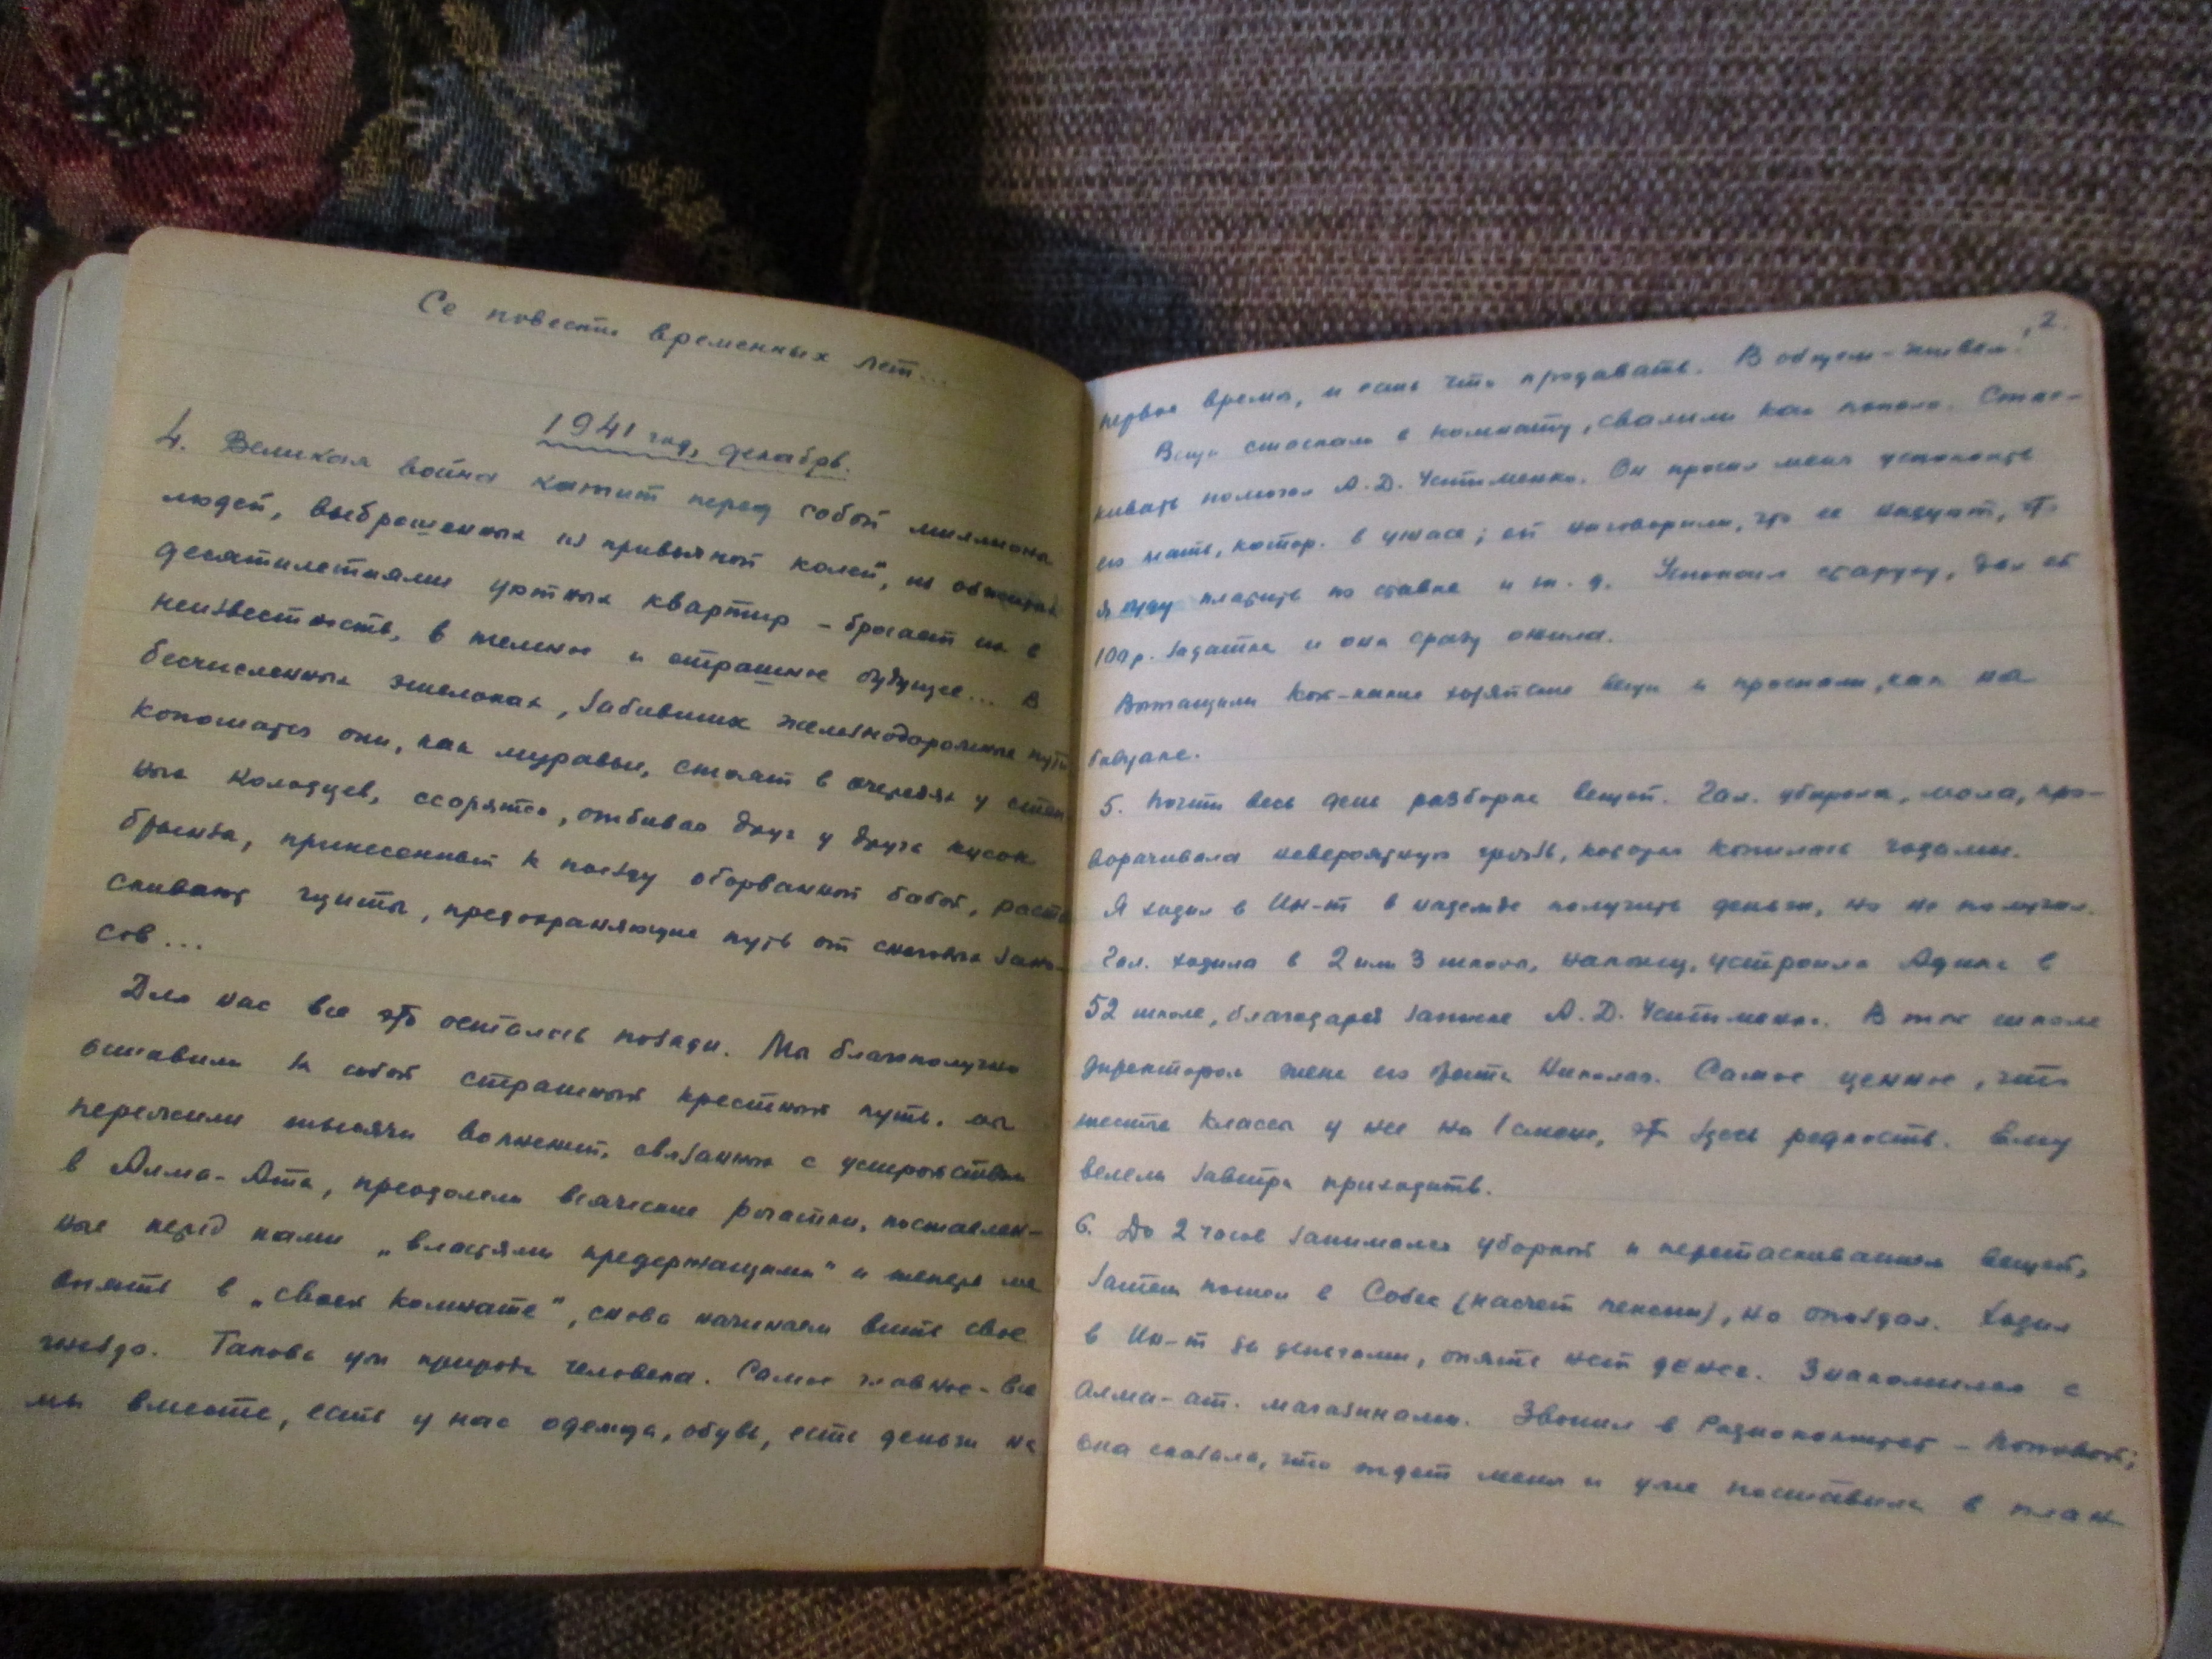 Се повести временных лет...
1941 год, декабрь.
4. Великая война катит перед собой миллионы
людей, выброшенных из привычной колеи, из обжитых
десятилетиями уютных квартир – бросает их в
неизвестность, в темное и страшное будущее... В
бесчисленных эшелонах, забивших железнодорожные пути
копошатся они, как муравьи, стоят в очередях у
ных колодцев, ссорятся, отбивая друг у друга кусок
брынзы, принесенный к поезду оборванной бабой, раста
скивают щиты, предохраняющие путь от снеговых зано-
сов...
Для нас все это осталось позади. Мы благополучно
оставили за собой страшный крестный путь, мы
пережили тысячи волнений, связанных с устройством
в Алма-Ата, преодолели всяческие рогатки, поставлен-
ные перед нами „властями предержащими" и теперь мы
опять в „своей комнате", снова начинаем вить свое
гнездо. Такова уж природа человека. Самое главное – все
мы вместе, есть у нас одежда, обувь, есть деньги на
2.
первое время, и есть что продавать. В общем – живем!
Вещи стаскали в комнату, свалили как попало. Стас-
кивать помогал А. Д. Устименко. Он просил меня успокоить
его мать, котор. в ужасе; ей наговорили, что ее надуют, что
я буду платить по ставке и т. д. Успокоил старуху, дал ей
100 р. задатка и она сразу ожила.
Вытащили кое-какие хозяйские вещи и проспали, как на
бивуаке.
5. Почти весь день разборка вещей. Гал. убирала, мыла, про-
ворачивала невероятную грязь, которая копилась годами.
Я ходил в Ин-т в надежде получить деньги, но не получил.
Гал. ходила в 2 или 3 школы, наконец, устроила Адика в
52 школе, благодаря записке А. Д. Устименко. В той школе
директором жена его брата Николая. Самое ценное, что
шестые классы у нее на 1 смене, это здесь редкость. Ему
велели завтра приходить.
6. До 2 часов занимался уборкой и перетаскиванием вещей,
затем пошел в Собес (насчет пенсии), но опоздал. Ходил
в Ин-т за деньгами, опять нет денег. Знакомился с
алма-ат. магазинами. Звонил в Радиокомитет – Поповой;
она сказала, что ждет меня и уже поставила в план